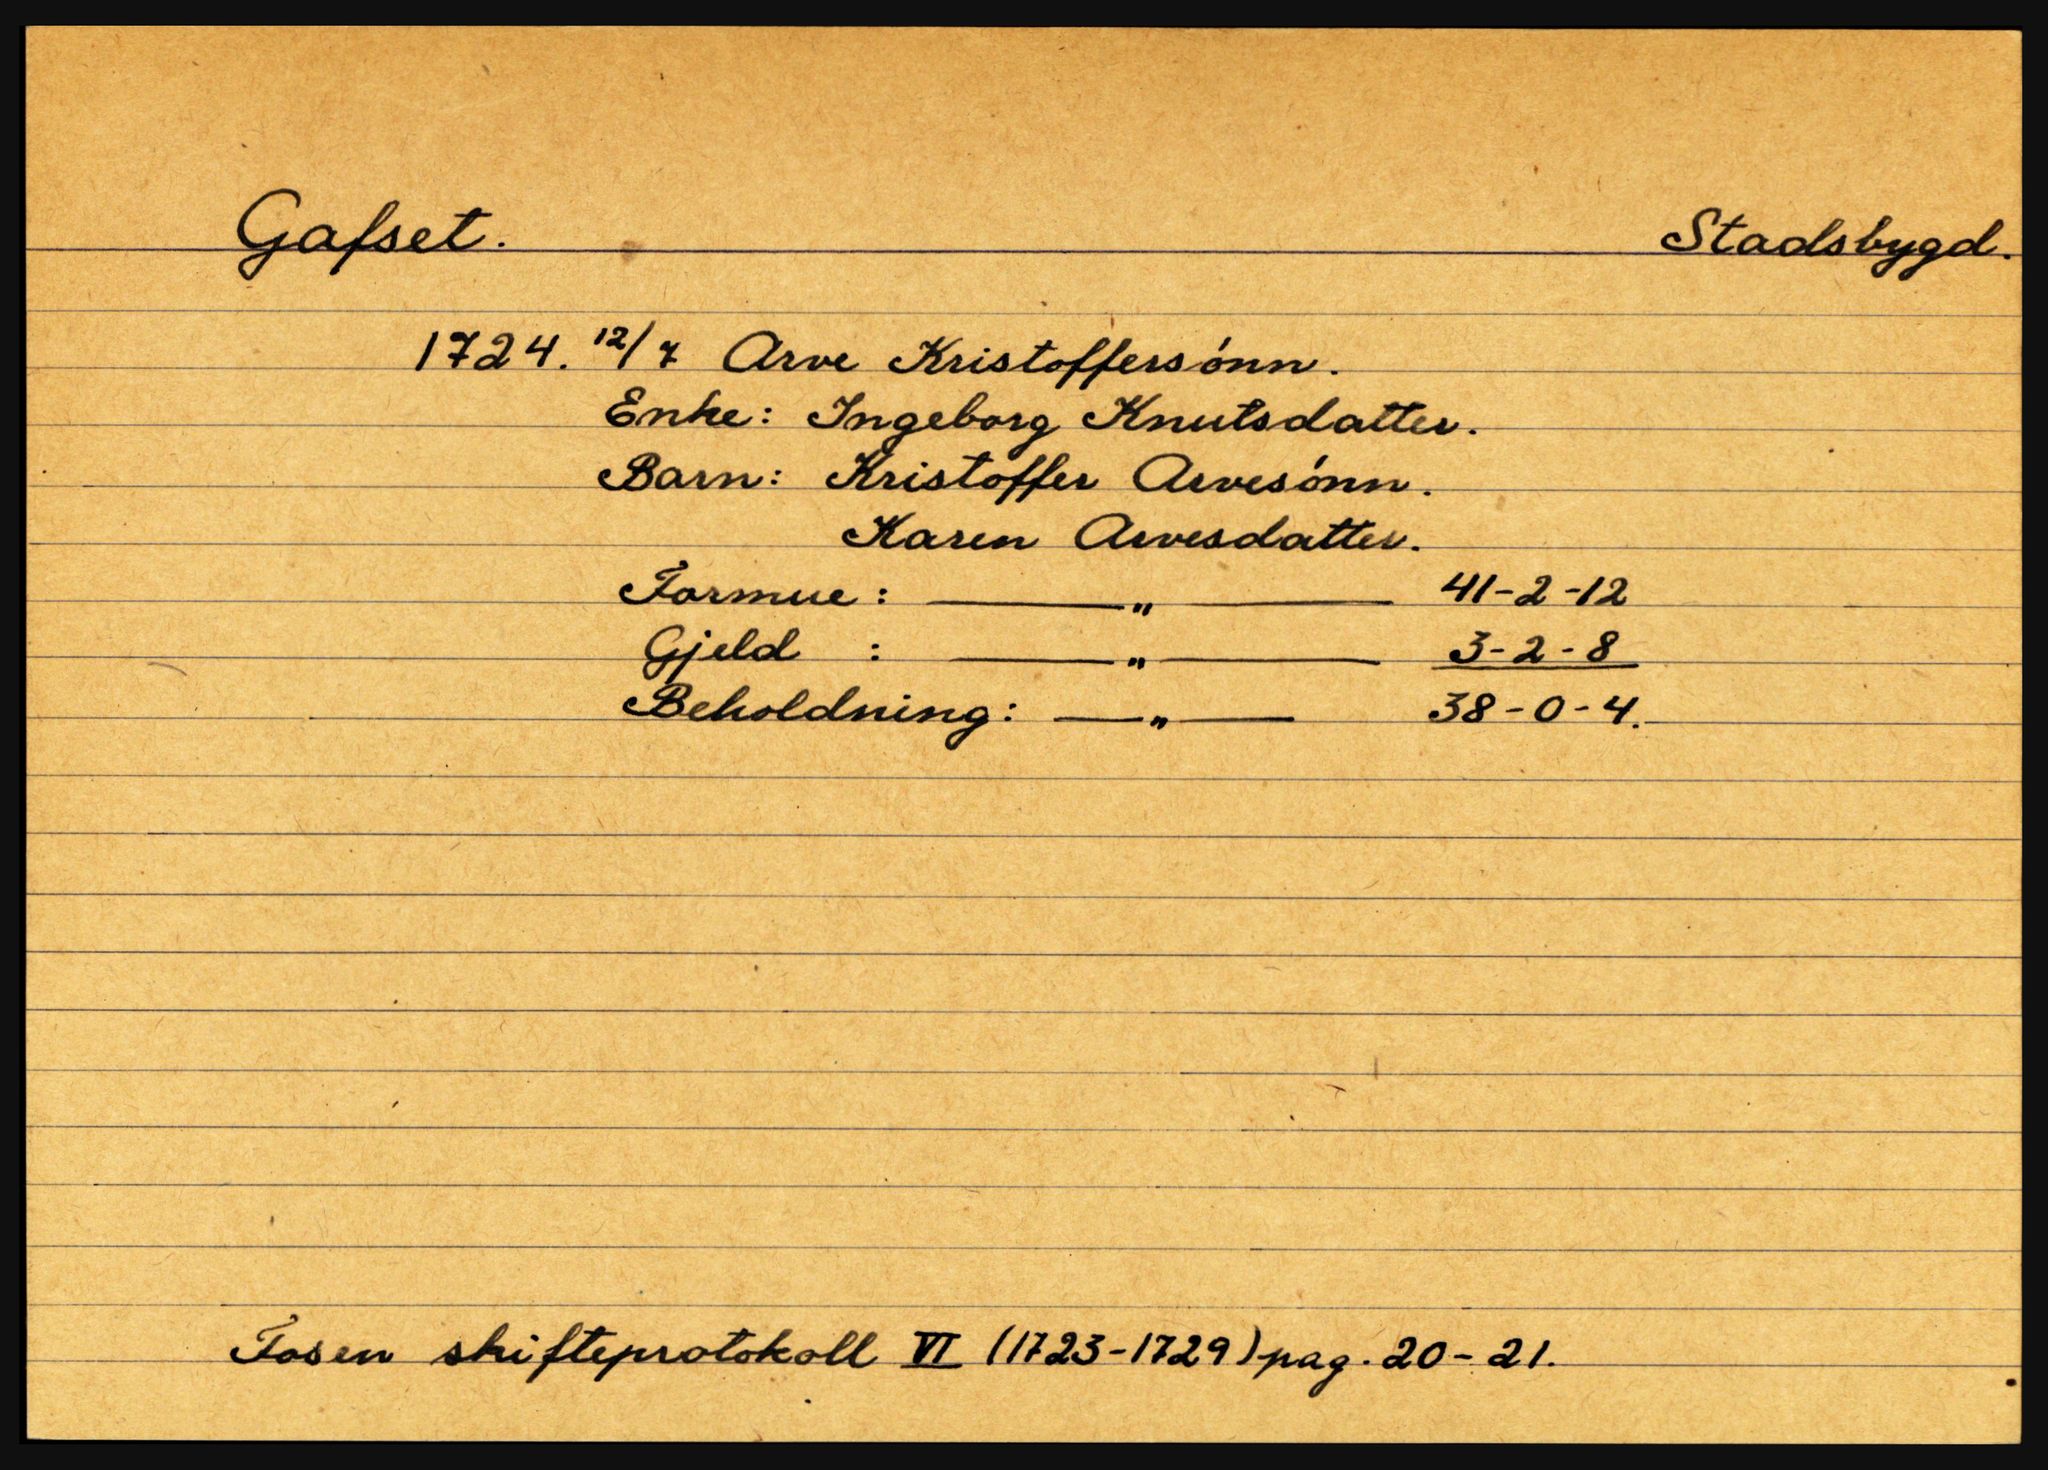 Gafset. Stadsbygd.
1724. 12/7 Arve Kristoffersónn.
Enke: Ingeborg Knutsdatter.
Barn: Kristoffer Arvesónn.
Karen Arvesdatter.
Formue: — „ — 41-2-12
Gjeld : — „ — 3-2-8
Beholdning: — „ — 38-0-4.
Fosen skifteprotokoll VI (1723-1729) pag. 20-21.